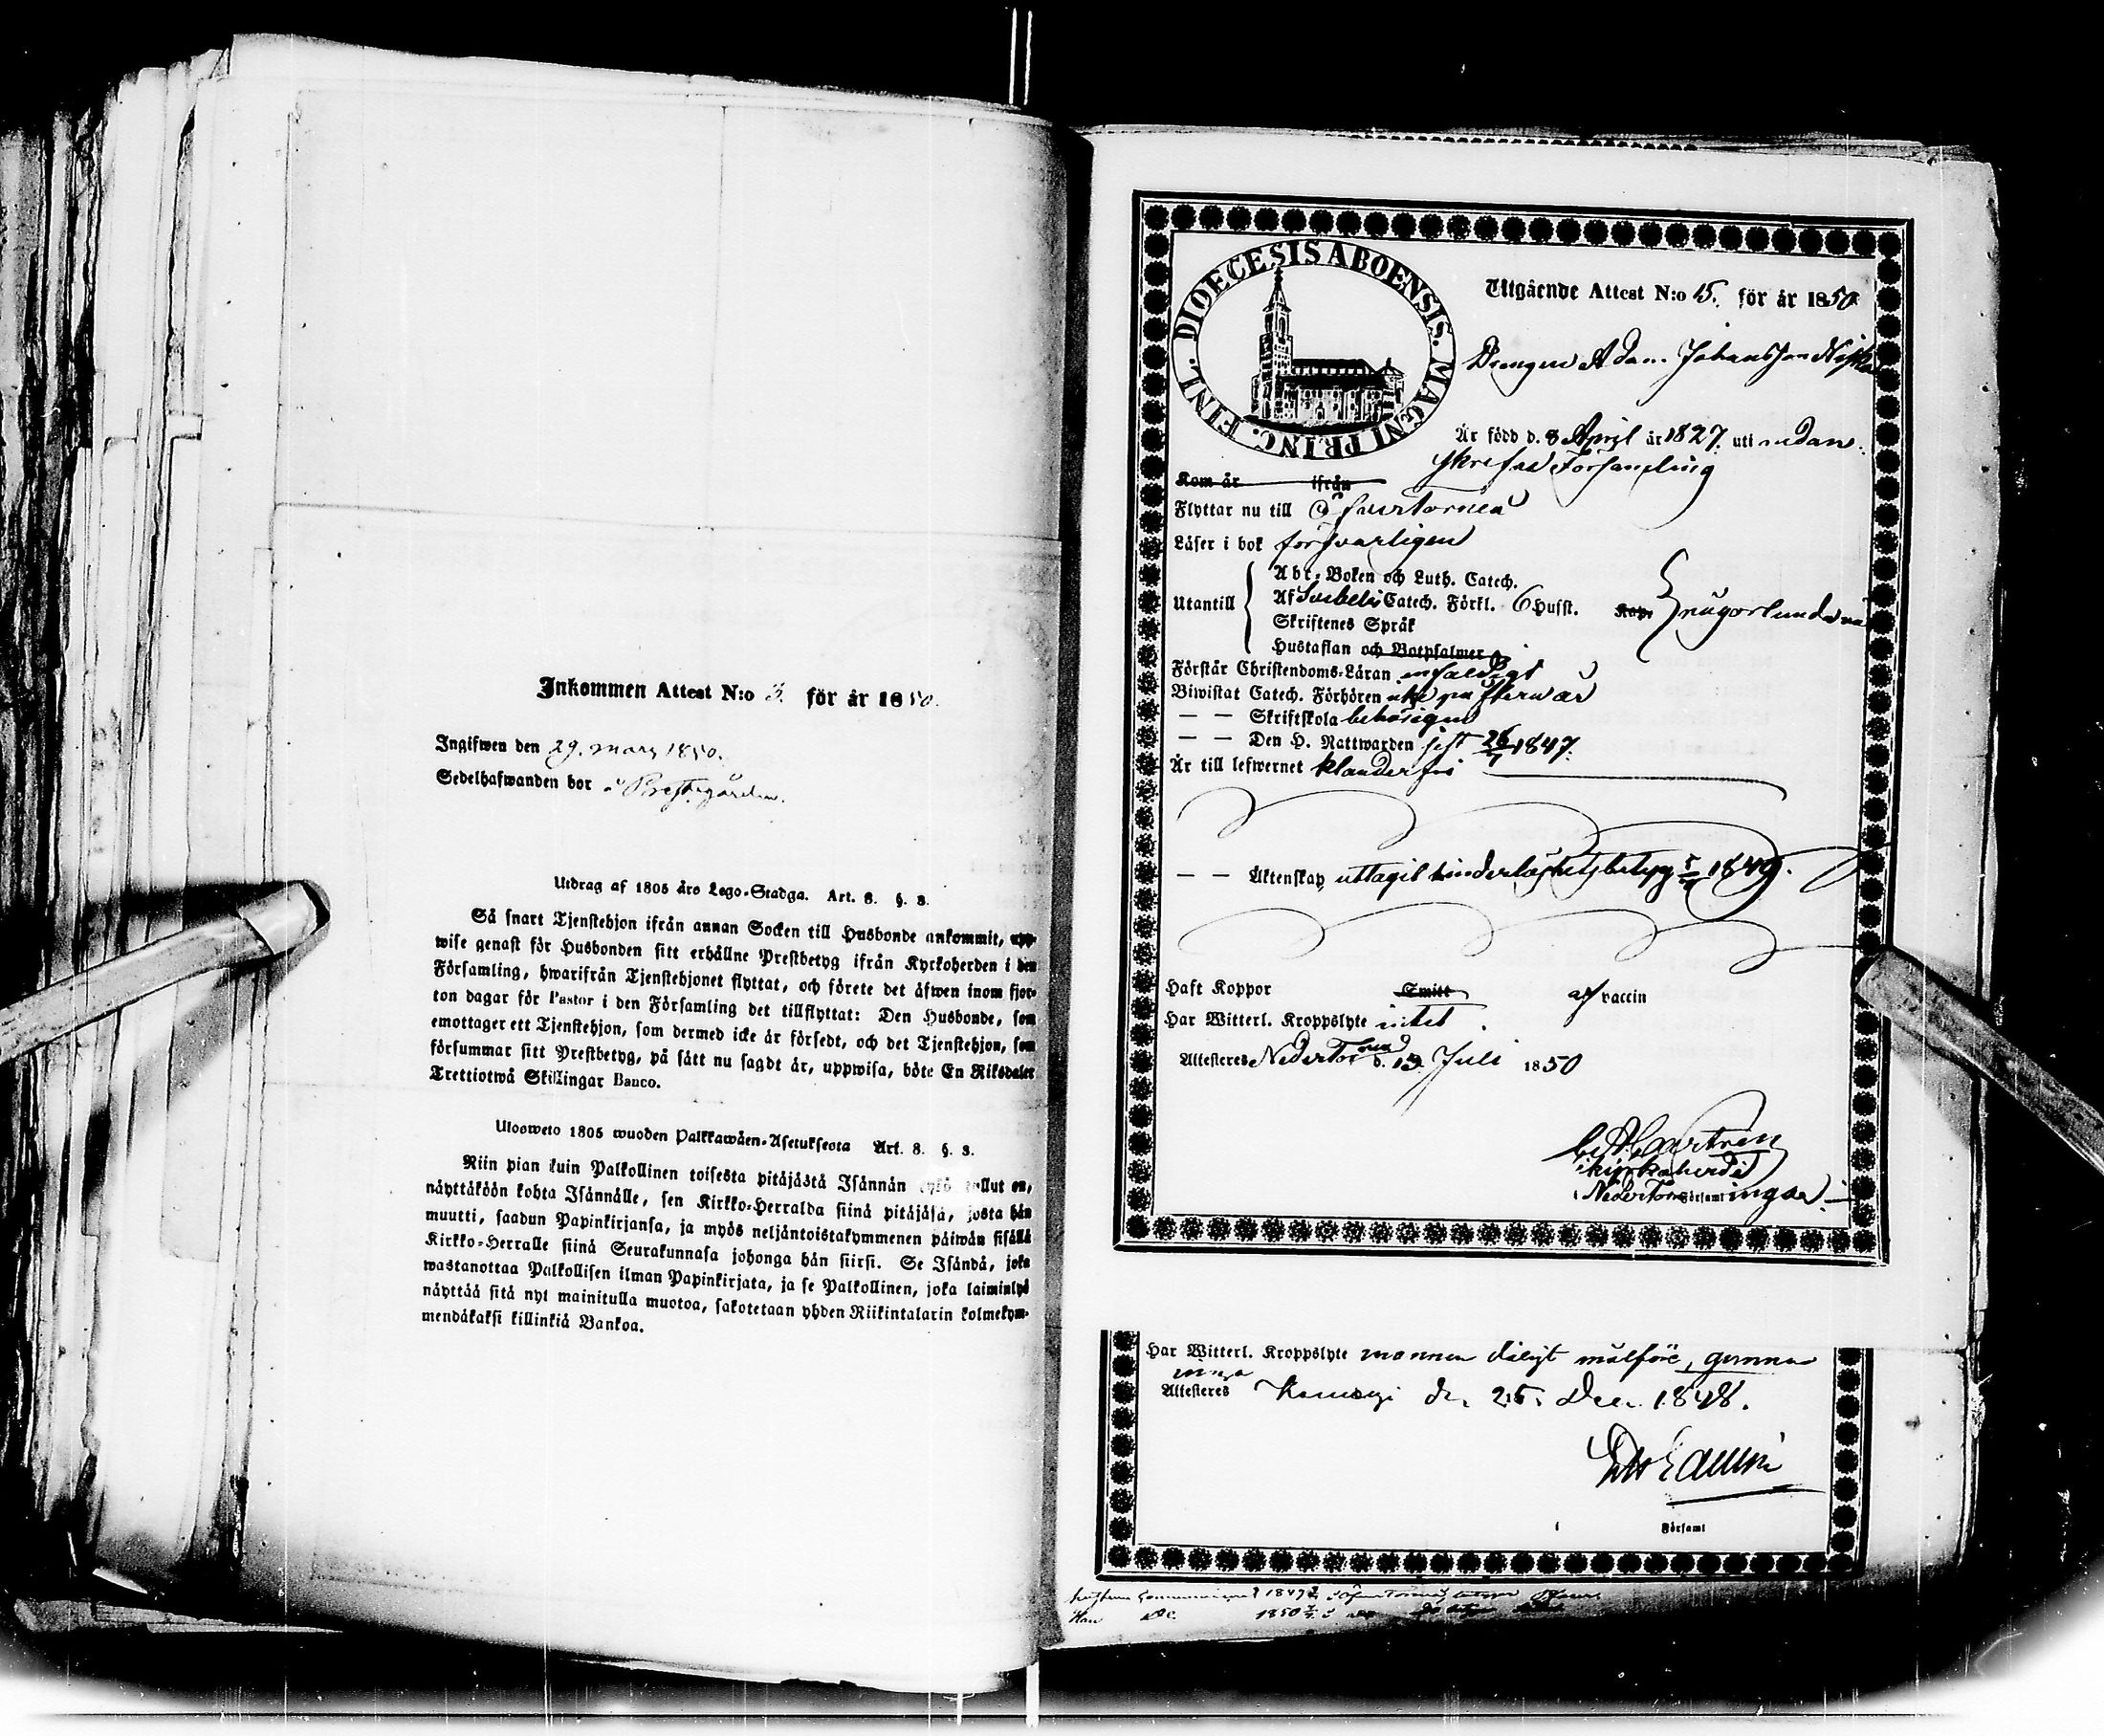 Inkommen Attest N:o 3. för år 1850.
Ingifwen den 29. mars 1850.
Sedelhafwanden bor i Prestgården.
Utdrag af 1805 års Lego-Stadga. Art. 8. §. 3.
Så snart Tjenstehjon ifrån annan Socken till Husbonde ankommit, upp-
wise genast för Husbonden sitt erhållne Prestbetyg ifrån Kyrkoherden i den
Församling, hwarifrån Tjenstehjonet flyttat, och förete det åfwen inom fjor-
ton dagar för Pastor i den Församling det tillflyttat: Den Husbonde, som
emottager ett Tjenstehjon, som dermed icke är försedt, och det Tjenstehjon, som
försummar sitt Prestbetyg, på sätt nu sagdt är, uppwisa, böte En Riksdaler
Trettiotwå Skillingar Banco.
Ulosweto 1805 wuoden Palkkawäen-Asetuksesta Art. 8. §. 3.
Niin pian kuin Palkollinen toisesta pitäjästä Isännän tullut on,
näyttäköön kohta Isännälle, sen Kirkko-Herralda siinä pitäjäsä, josta hän
muutti, saadun Papinkirjansa, ja myös neljäntoistakymmenen päiwän sisällä
Kirkko-Herralle siinä Seurakunnasa johonga hän siirsi. Se Isändä, joka
wastanottaa Palkollisen ilman Papinkirjata, ja se Palkollinen, joka laiminlyö
näyttää sitä nyt mainitulla muotoa, sakotetaan yhden Riikintalarin kolmekym-
mendäkaksi killinkiä Bankoa.
DIOECESIS ABOENSIS. MAGNI PRINC. FINL.
Utgående Attest N:o 15. för år 1850.
Drengen Adam Johansson
Är född d. 8 April år 1827. uti nedan-
skrefne Församling
Kom år ifrån
Flyttar nu till Öfvertorneå
Läser i bok försvarligen
Utantill
Abc-Boken och Luth. Catech.
Af Svebelii Catech. Förkl. 6 Husst.
Skriftenes Språk
Hustaflan och Botpsalmer
Förstår Christendoms-Läran enfaldigt
Biwistat Catech. Förhören icke på flera år
— — Skriftskola behörigen
— — Den H. Nattwarden sist 26/ 1847.
Är till lefwernet klanderfri
— — Äktenskap uttagit hinderlöshetsbetyg 1849.
Haft Koppor Smitt af vaccin
Har Witterl. Kroppslyte intet
Attesteras Nedertorneå d. 15 Juli 1850
Castren
kyrkoherde
i Nedertorneå Församlingar.
Har Witterl. Kroppslyte mannen dåligt målföre, qvinnan
inga
Attesteras den 25. Dec. 1848.
i Församl